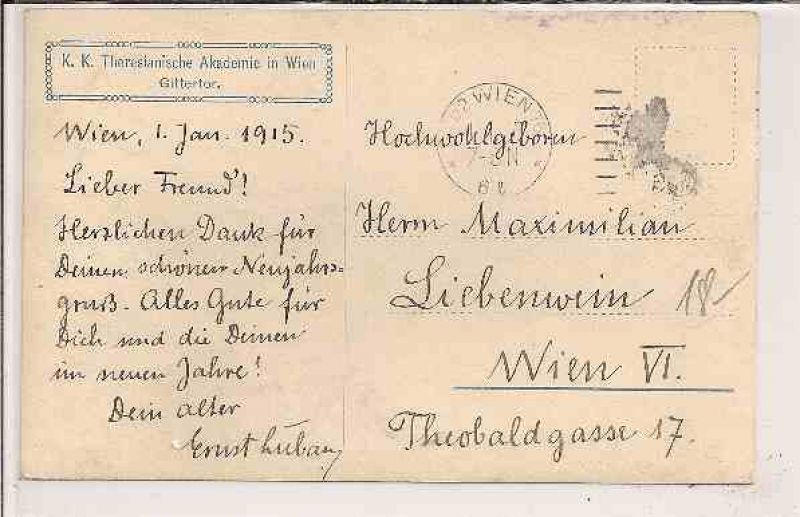 K. K. Theresianische Akademie in Wien
Gittertor.
Wien, 1. Jan. 1915.
Lieber Freund!
Herzlichen Dank für
Deinen schönen Neujahrs-
gruß. Alles Gute für
Dich und die Deinen
im neuen Jahre!
Dein alter
Ernst
WIEN
Hochwohlgeboren
Herrn Maximilian
Liebenwein
18-
Wien VI.
Theobaldgasse 17.